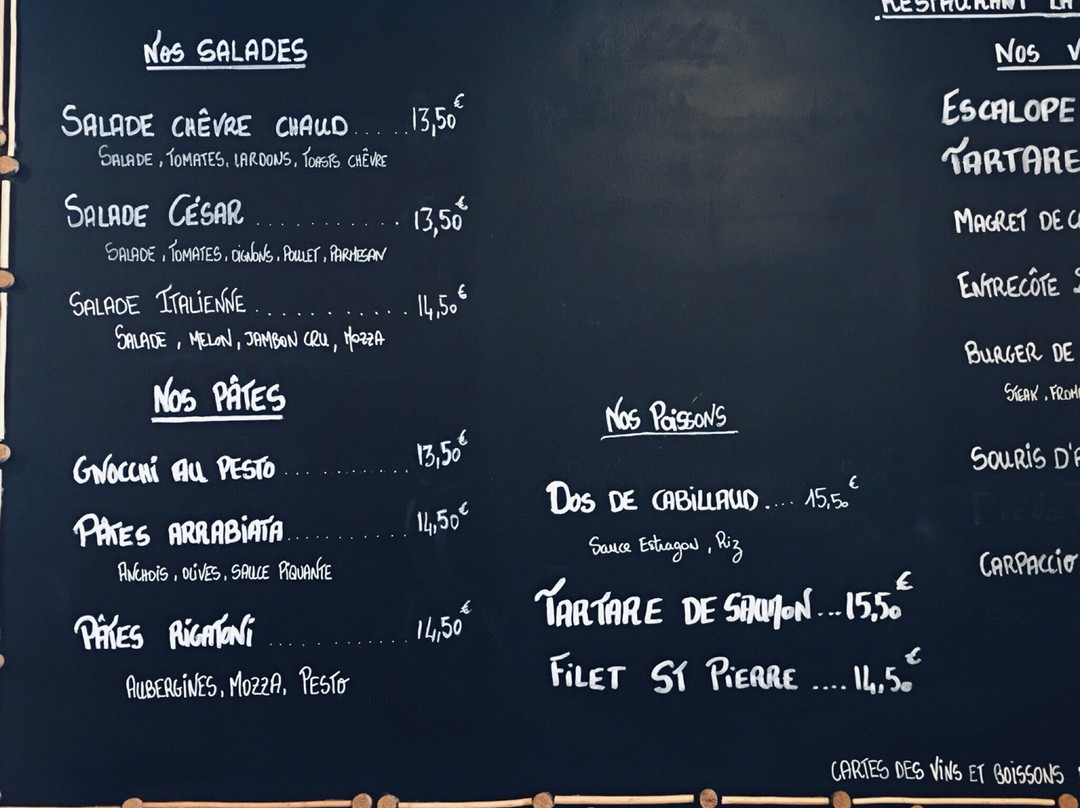 Nos SALADES
SALADE CHÊVRE CHAUD.....13,50€
SALADE, TOMATES, LARDONS, TOASTS CHÊVRE
SALADE CÉSAR..........13,50€
SALADE, TOMATES, OIGNONS, POULET, PARMESAN
SALADE ITALIENNE...........14,50€
SALADE, MELON, JAMBON CRU, MOZZA
Nos PÂTES
GNOCCHI AU PESTO...........13,50€
PÂTES ARRABIATA...........14,50€
ANCHOIS, OLIVES, SAUCE PIQUANTE
PÂTES RIGATONI...........14,50€
AUBERGINES, MOZZA, PESTO
Nos Poissons
DOS DE CABILLAUD....15,50€
Sauce Estragon, Riz
TARTARE DE SAUMON...15,50€
FILET ST PIERRE....14,50€
RESTAURANT LA
Nos V
ESCALOPE
TARTARE
MAGRET DE C
ENTRECÔTE
BURGER DE
STEAK, FROM
SOURIS D'A
CARPACCIO
CARTES DES VINS ET BOISSONS